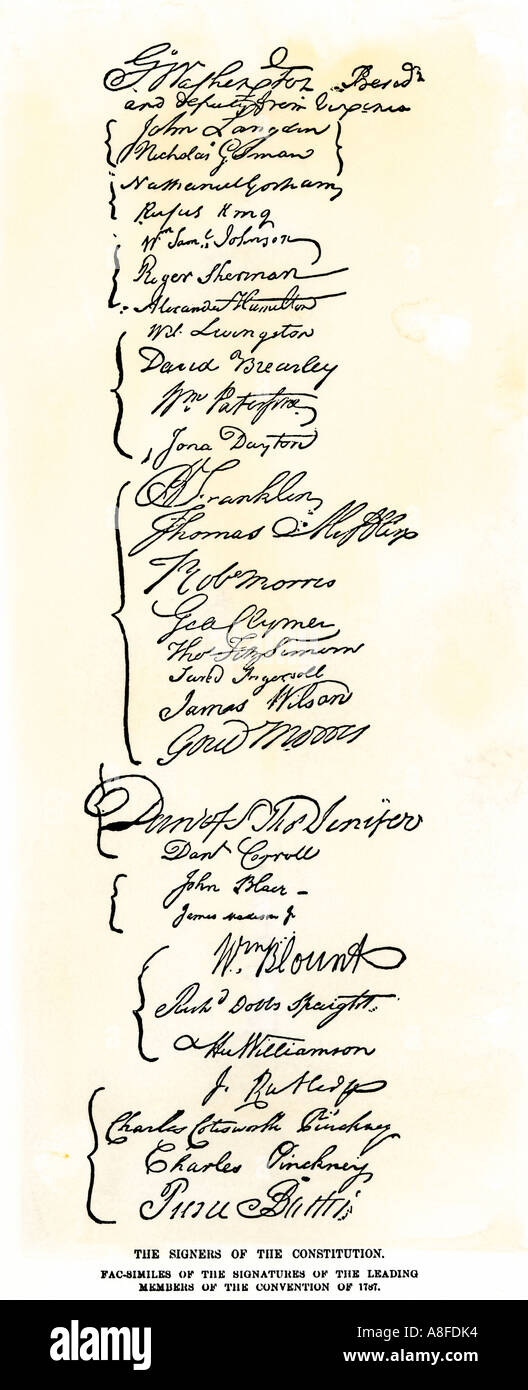 G. Washington Presidt
and deputy from Virginia
John Langdon
Nicholas Gilman
Nathaniel Gorham
Rufus King
Wm Saml. Johnson
Roger Sherman
Alexander Hamilton
Wil. Livingston
David Brearley
Wm Paterson
Jona Dayton
B Franklin
Thomas Mifflin
Robt Morris
Geo Clymer
Thos FitzSimons
Jared Ingersoll
James Wilson
Gouv Morris
Dan of St Thos Jenifer
Danl Carroll
John Blair -
James Madison Jr
Wm Blount
Richd Dobbs Spaight.
Hu Williamson
J. Rutledge
Charles Cotesworth Pinckney
Charles Pinckney
Pierce Butler
THE SIGNERS OF THE CONSTITUTION.
FAC-SIMILES OF THE SIGNATURES OF THE LEADING
MEMBERS OF THE CONVENTION OF 1787.
alamy
Image ID: A8FDK4
www.alamy.com